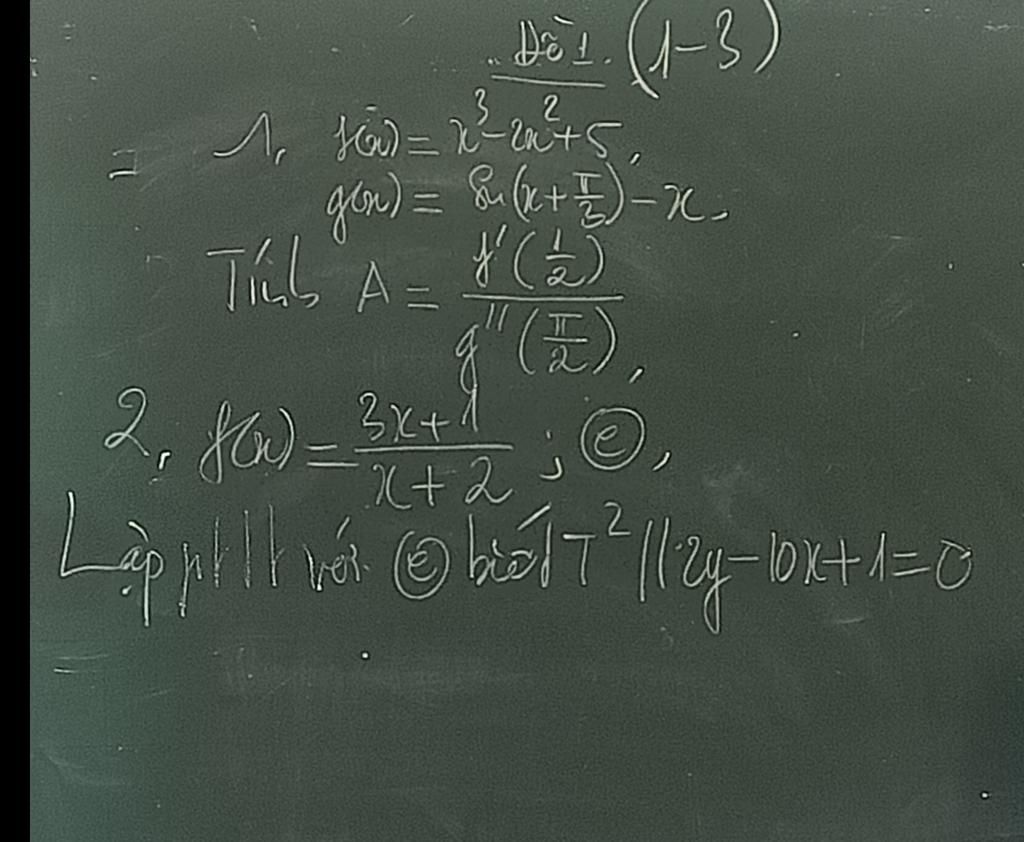 Đề 1. (1-3)
1, f(x) = x³ - 2x² + 5,
g(x) = Sin(x + π/3) - x.
Tính A = f'(1/2) / g''(π/2),
2, f(x) = (3x+1)/(x+2) ; (C),
Lập pttt với (C) biết T² // 2y - 10x + 1 = 0